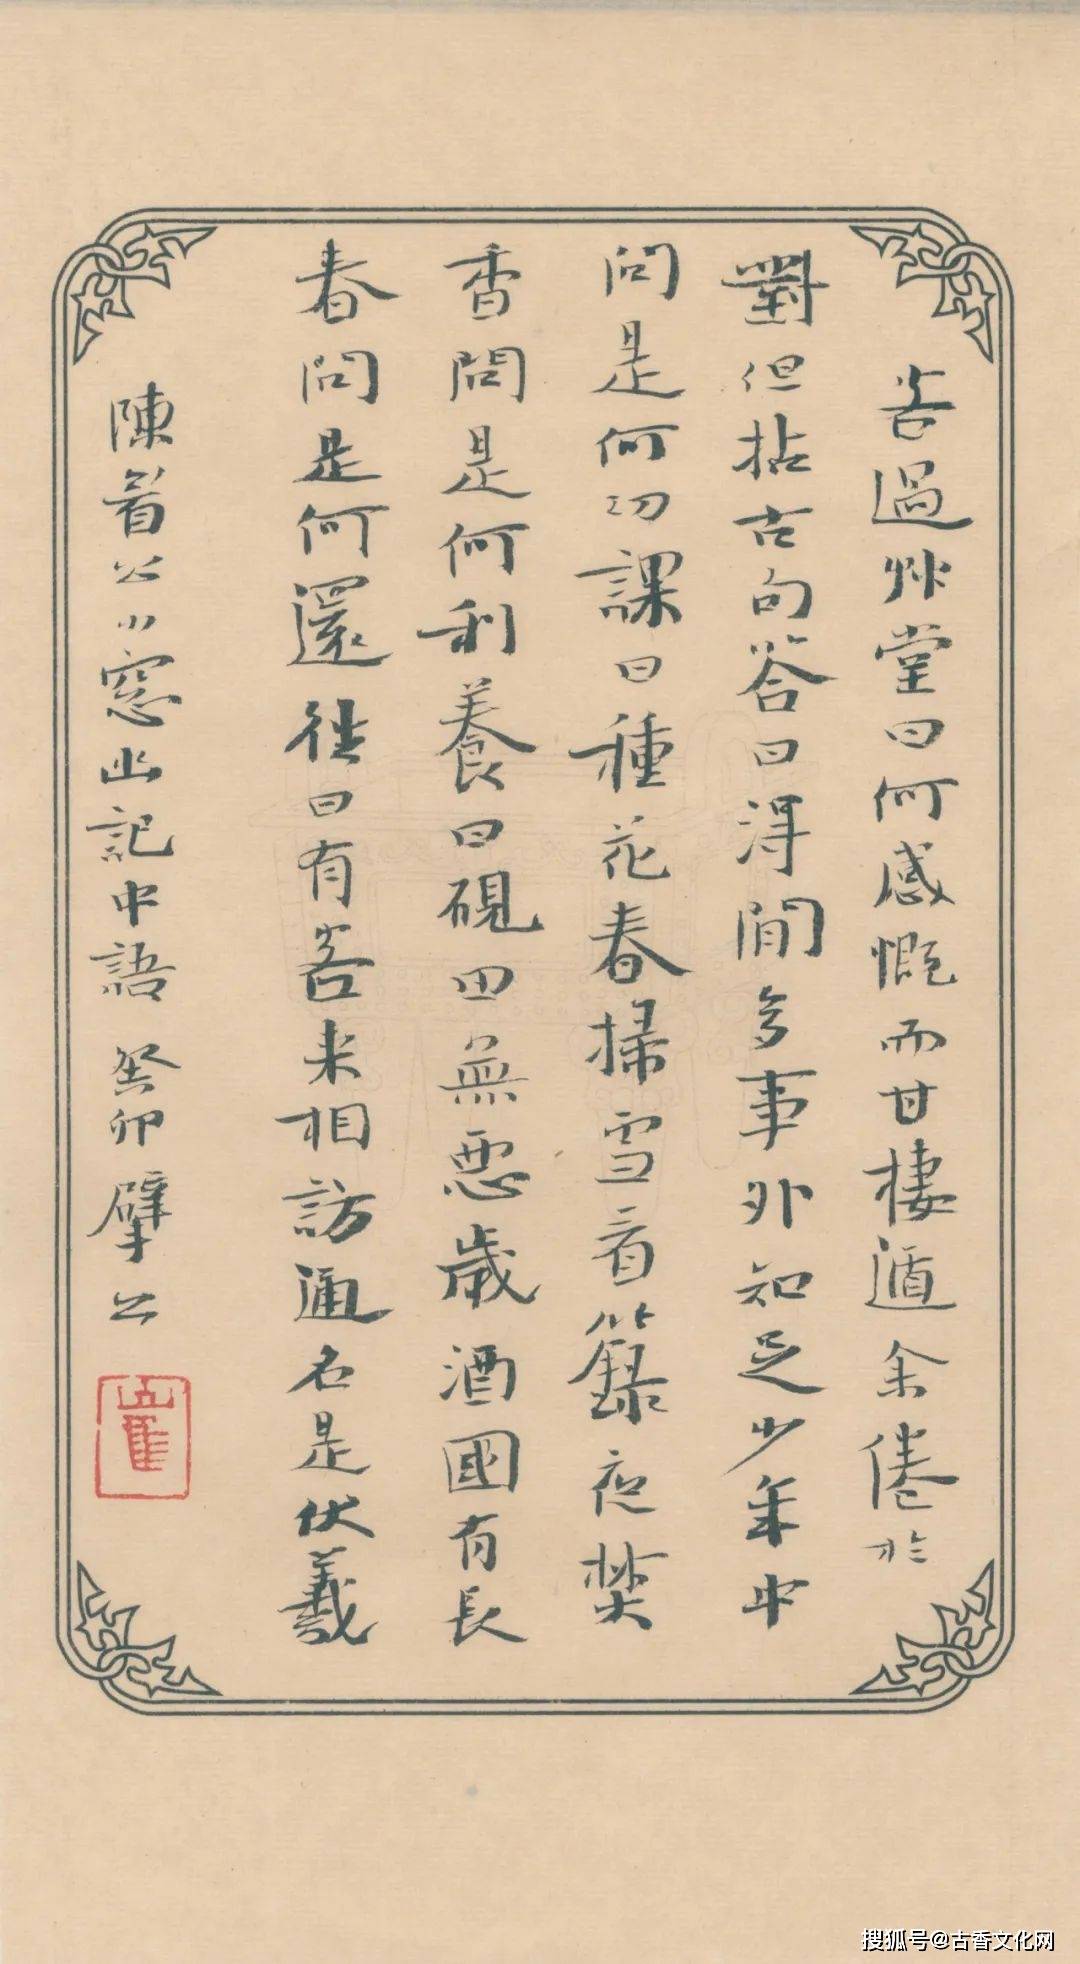 客過艸堂曰何感慨而甘棲遁余倦於
對但拈古句答曰得閒多事外知足少年中
問是何功課曰種花春掃雪看籙夜焚
香問是何利養曰硯田無惡歲酒國有長
春問是何還往曰有客來相訪通名是伏羲
陳眉公小窓幽記中語 癸卯 擘公
搜狐号@古香文化网